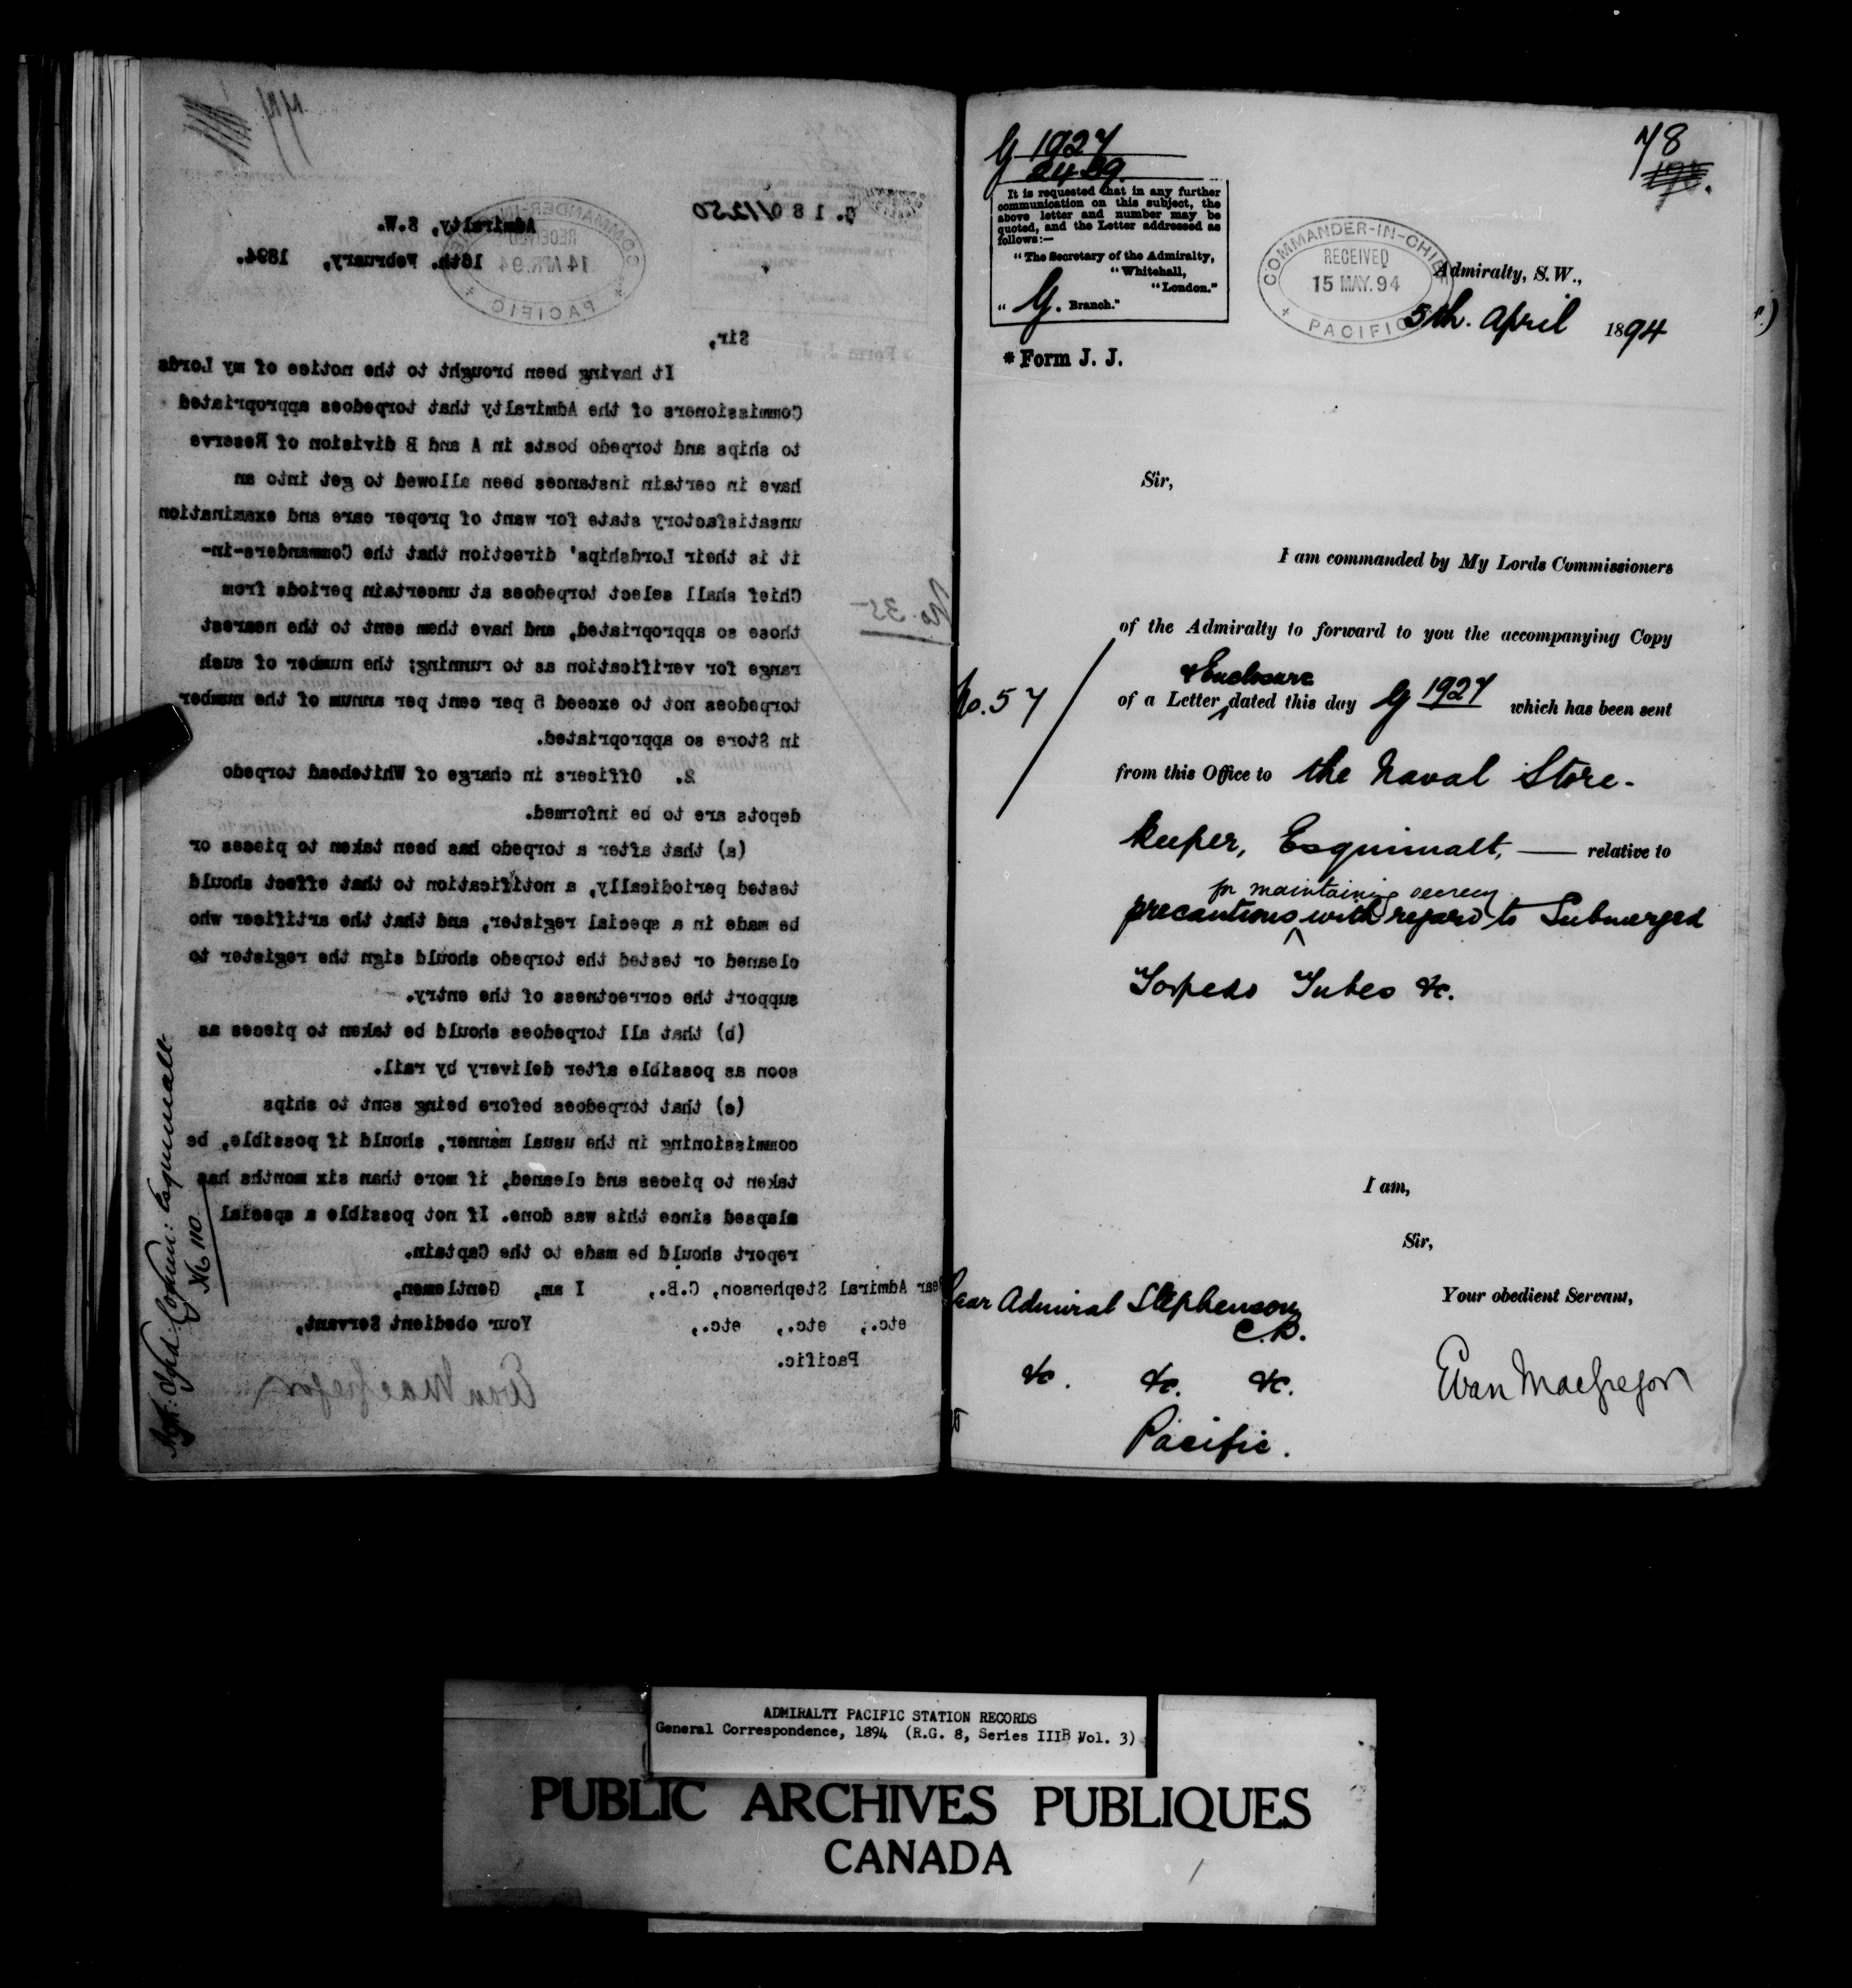 G. 180/1250
Admiralty, S.W.
16th. February, 1894.
COMMANDER-IN-CHIEF
RECEIVED
14 APR. 94
PACIFIC
Sir,
It having been brought to the notice of my Lords
Commissioners of the Admiralty that torpedoes appropriated
to ships and torpedo boats in A and B division of Reserve
have in certain instances been allowed to get into an
unsatisfactory state for want of proper care and examination
it is their Lordships' direction that the Commanders-in-
Chief shall select torpedoes at uncertain periods from
those so appropriated, and have them sent to the nearest
range for verification as to running; the number of such
torpedoes not to exceed 5 per cent per annum of the number
in Store so appropriated.
No. 35
2. Officers in charge of Whitehead torpedo
depots are to be informed.
(a) that after a torpedo has been taken to pieces or
tested periodically, a notification to that effect should
be made in a special register, and that the artificer who
cleaned or tested the torpedo should sign the register to
support the correctness of the entry.
(b) that all torpedoes should be taken to pieces as
soon as possible after delivery by rail.
(c) that torpedoes before being sent to ships
commissioning in the usual manner, should if possible, be
taken to pieces and cleaned, if more than six months has
elapsed since this was done. If not possible a special
report should be made to the Captain.
I am, Gentlemen,
Your obedient Servant,
Evan MacGregor
Rear Admiral Stephenson, C.B.,
etc., etc., etc.,
Pacific.
Esquimalt
No 110
G 1927
2429.
It is requested that in any further
communication on this subject, the
above letter and number may be
quoted, and the Letter addressed as
follows:—
"The Secretary of the Admiralty,
"Whitehall,
"London."
" G. Branch."
* Form J. J.
78
COMMANDER-IN-CHIEF
RECEIVED
15 MAY. 94
PACIFIC
Admiralty, S.W.,
5th. April 1894
Sir,
I am commanded by My Lords Commissioners
of the Admiralty to forward to you the accompanying Copy
& Enclosure
No. 57
of a Letter dated this day G 1927 which has been sent
from this Office to the Naval Store-
keeper, Esquimalt, — relative to
for maintaining secrecy
precautions with regard to Submerged
Torpedo Tubes &c.
I am,
Sir,
Your obedient Servant,
Evan MacGregor
Rear Admiral Stephenson,
C.B.
&c. &c. &c.
Pacific.
ADMIRALTY PACIFIC STATION RECORDS
General Correspondence, 1894 (R.G. 8, Series IIIB Vol. 3)
PUBLIC ARCHIVES PUBLIQUES
CANADA